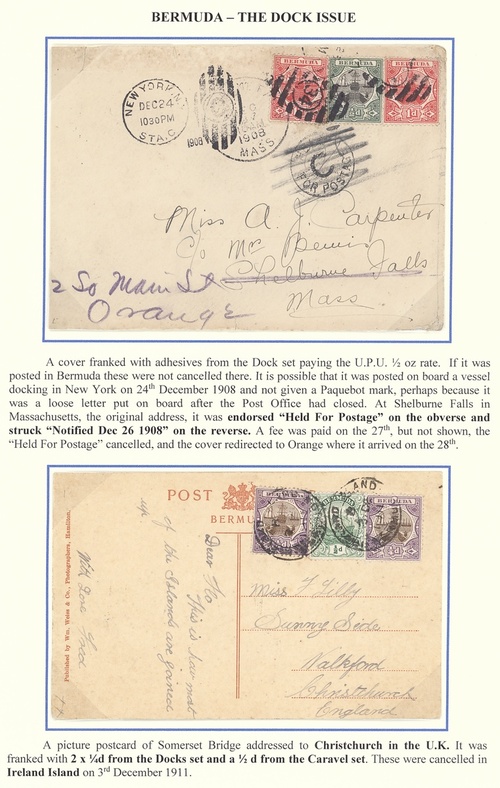 BERMUDA – THE DOCK ISSUE
BERMUDA
BERMUDA
BERMUDA
½d
1d
NEW YORK, N.Y.
DEC 24
1030 PM
STA. C
1908
1908
MASS
FOR POSTA
Miss A. J. Carpenter
c/o Mr. Bemis
Shelburne Falls
Mass.
2 So Main St
Orange
A cover franked with adhesives from the Dock set paying the U.P.U. ½ oz rate. If it was
posted in Bermuda these were not cancelled there. It is possible that it was posted on board a vessel
docking in New York on 24th December 1908 and not given a Paquebot mark, perhaps because it
was a loose letter put on board after the Post Office had closed. At Shelburne Falls in
Massachusetts, the original address, it was endorsed “Held For Postage” on the obverse and
struck “Notified Dec 26 1908” on the reverse. A fee was paid on the 27th, but not shown, the
“Held For Postage” cancelled, and the cover redirected to Orange where it arrived on the 28th.
POST
BERMU
BERMUDA
½d
LAND
Published by Wm. Weiss & Co., Photographers, Hamilton.
Dear Flo
This is how most
of the Islands are joined
up.
With Love Fred
Miss F Lilly
Sunny Side
Walkford
Christchurch
England
A picture postcard of Somerset Bridge addressed to Christchurch in the U.K. It was
franked with 2 x ¼d from the Docks set and a ½ d from the Caravel set. These were cancelled in
Ireland Island on 3rd December 1911.